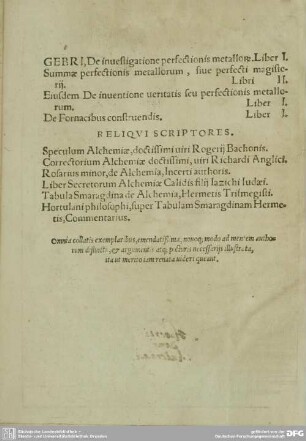 GEBRI, De inuestigatione perfectionis metallorũ. Liber I.
Summæ perfectionis metallorum, siue perfecti magiste-
rij. Libri II.
Eiusdem De inuentione ueritatis seu perfectionis metallo-
rum. Liber I.
De Fornacibus construendis. Liber I.
RELIQVI SCRIPTORES.
Speculum Alchemiæ, doctissimi uiri Rogerij Bachonis.
Correctorium Alchemiæ doctissimi, uiri Richardi Anglici.
Rosarius minor, de Alchemia, Incerti authoris.
Liber Secretorum Alchemiæ Calidis filij Iazichi Iudæi.
Tabula Smaragdina de Alchemia, Hermetis Trismegisti.
Hortulani philosophi, super Tabulam Smaragdinam Herme-
tis, Commentarius.
Omnia collatis exemplaribus, emendatissima, modo ad mentem autho-
rum distincta, & argumentis atq; picturis necessarijs illustrata,
ita ut merito iam renata uideri queant.
Sächsische Landesbibliothek -
Staats- und Universitätsbibliothek Dresden
gefördert von der
Deutschen Forschungsgemeinschaft
DFG